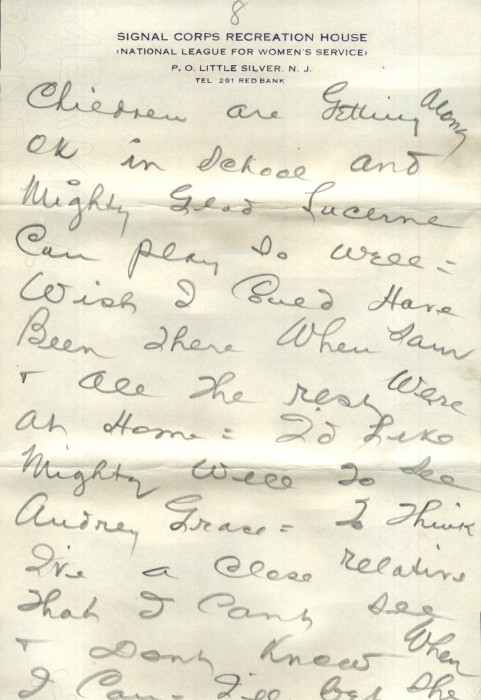 8
SIGNAL CORPS RECREATION HOUSE
(NATIONAL LEAGUE FOR WOMEN'S SERVICE)
P. O. LITTLE SILVER, N. J.
TEL 291 RED BANK
Children are Getting Along
OK in School and
Mighty Glad Lucerne
Can play So well =
Wish I Could Have
Been There When
+ All The rest Were
At Home = I'd Like
Mighty Well To See
Audrey Grace = To Think
I've a Close relative
That I Cant See
+ Dont Know When
I Can = I'll bet She